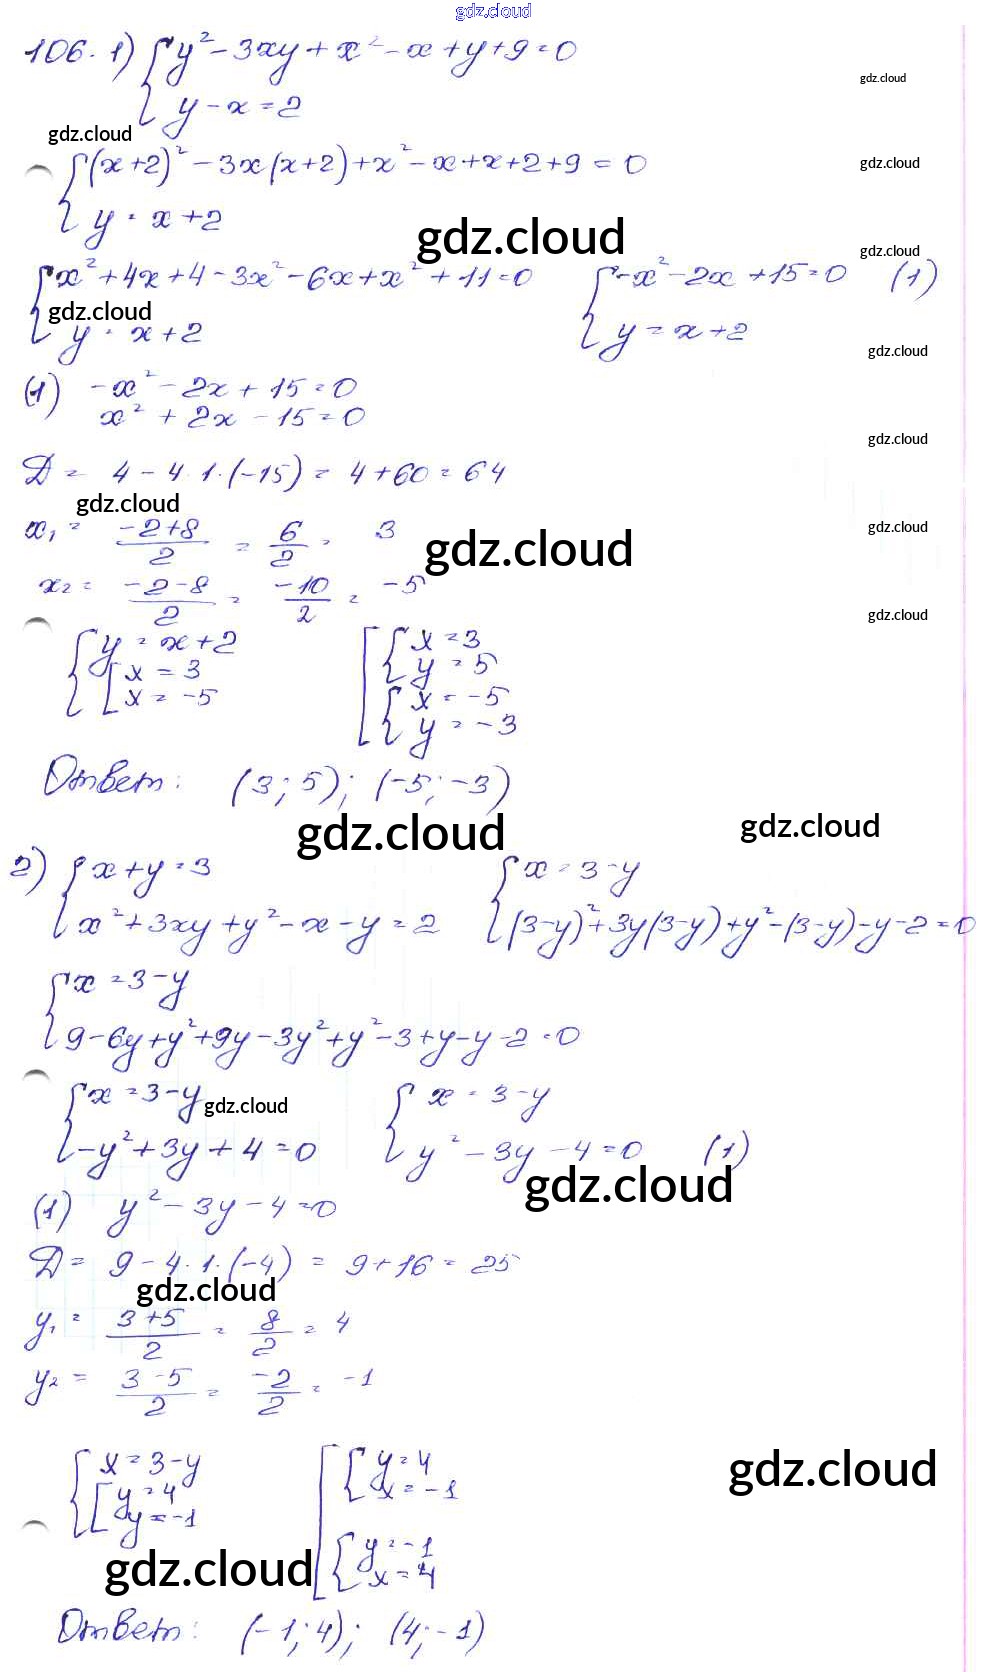 gdz.cloud
106. 1) { y² - 3xy + x² - x + y + 9 = 0
gdz.cloud
{ y - x = 2
gdz.cloud
{ (x+2)² - 3x(x+2) + x² - x + x + 2 + 9 = 0
gdz.cloud
{ y = x + 2
gdz.cloud
gdz.cloud
{ x² + 4x + 4 - 3x² - 6x + x² + 11 = 0 { -x² - 2x + 15 = 0 (1)
gdz.cloud
{ y = x + 2 { y = x + 2
gdz.cloud
(1) -x² - 2x + 15 = 0
x² + 2x - 15 = 0
gdz.cloud
D = 4 - 4·1·(-15) = 4 + 60 = 64
gdz.cloud
x₁ = (-2+8)/2 = 6/2 = 3
gdz.cloud
gdz.cloud
x₂ = (-2-8)/2 = -10/2 = -5
gdz.cloud
{ y = x + 2 [ { x = 3
[ x = 3 { y = 5
[ x = -5 { x = -5
{ y = -3
Ответ: (3; 5); (-5; -3)
gdz.cloud
gdz.cloud
2) { x + y = 3 { x = 3 - y
{ x² + 3xy + y² - x - y = 2 { (3-y)² + 3y(3-y) + y² - (3-y) - y - 2 = 0
{ x = 3 - y
{ 9 - 6y + y² + 9y - 3y² + y² - 3 + y - y - 2 = 0
{ x = 3 - y { x = 3 - y
gdz.cloud
{ -y² + 3y + 4 = 0 { y² - 3y - 4 = 0 (1)
gdz.cloud
(1) y² - 3y - 4 = 0
D = 9 - 4·1·(-4) = 9 + 16 = 25
gdz.cloud
y₁ = (3+5)/2 = 8/2 = 4
y₂ = (3-5)/2 = -2/2 = -1
{ x = 3 - y [ { y = 4
[ y = 4 { x = -1
[ y = -1
gdz.cloud
{ y = -1
{ x = 4
gdz.cloud
Ответ: (-1; 4); (4; -1)